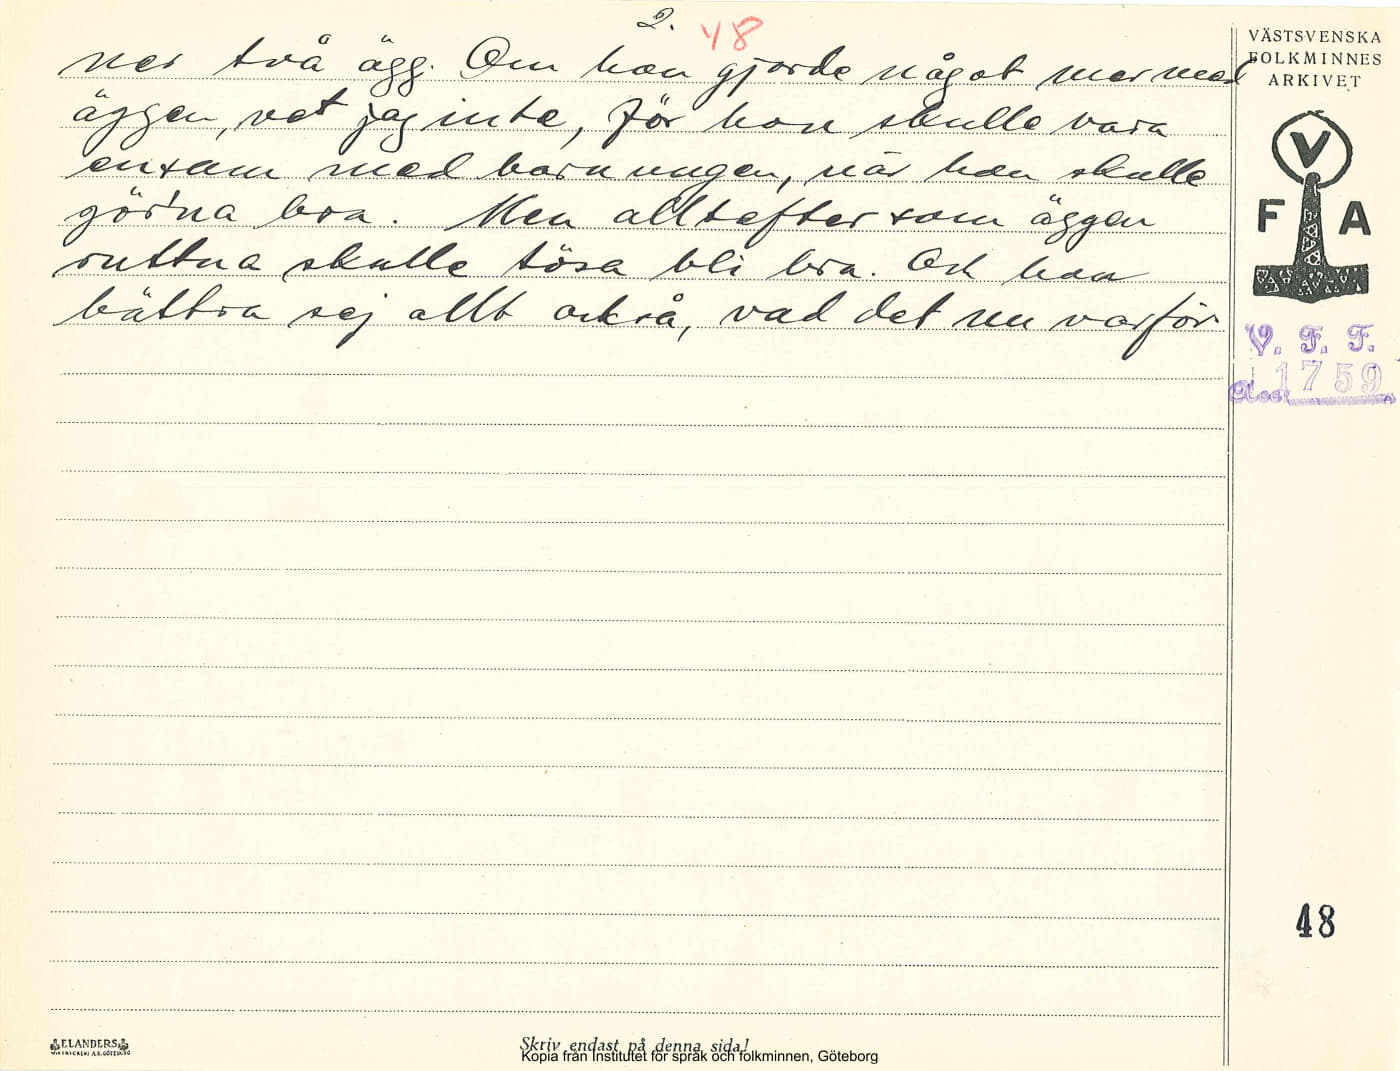 2.
48
ner två ägg. Om hon gjorde något mer med
äggen, vet jag inte, för hon skulle vara
ensam med barnungen, när hon skulle
gör'na bra. Men allteftersom äggen
ruttna skulle tösa bli bra. Och hon
bättra sej allt också, vad det nu var för
VÄSTSVENSKA
FOLKMINNES
ARKIVET
V
F A
V. F. F.
Acc. 1759
48
ELANDERS
Skriv endast på denna sida!
Kopia från Institutet för språk och folkminnen, Göteborg